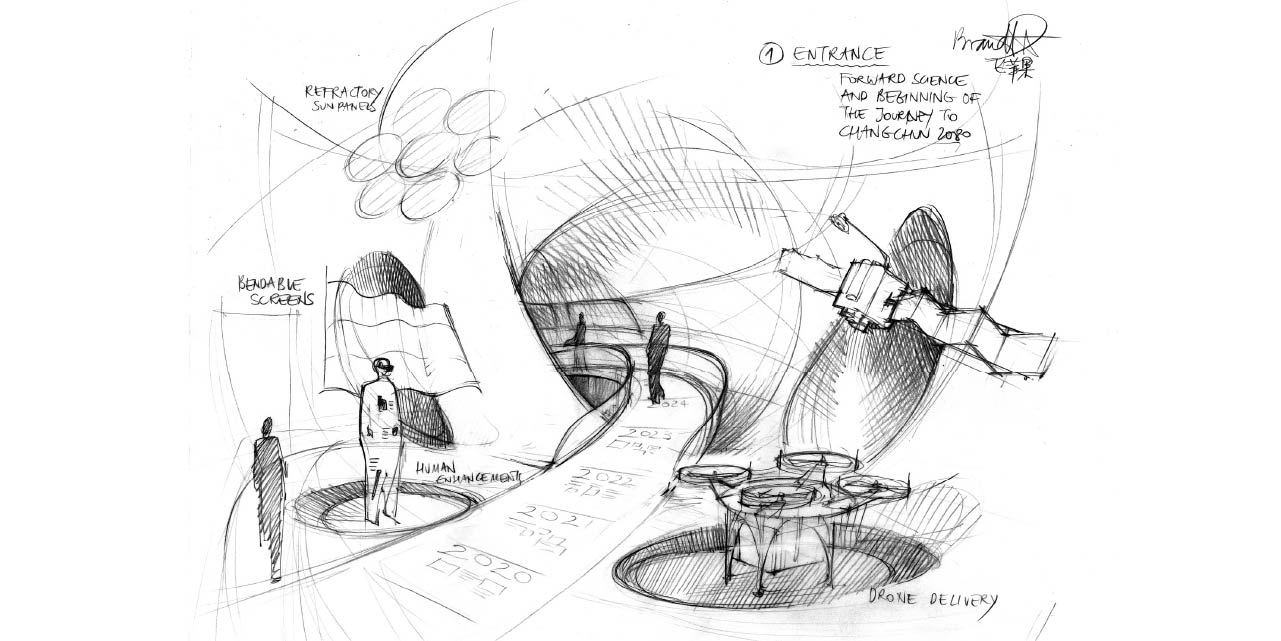 ① ENTRANCE
FORWARD SCIENCE
AND BEGINNING OF
THE JOURNEY TO
CHANGCHUN 2080
REFRACTORY
SUN PANELS
BENDABLE
SCREENS
HUMAN
ENHANCEMENTS
2024
2023
2022
2021
2020
DRONE DELIVERY